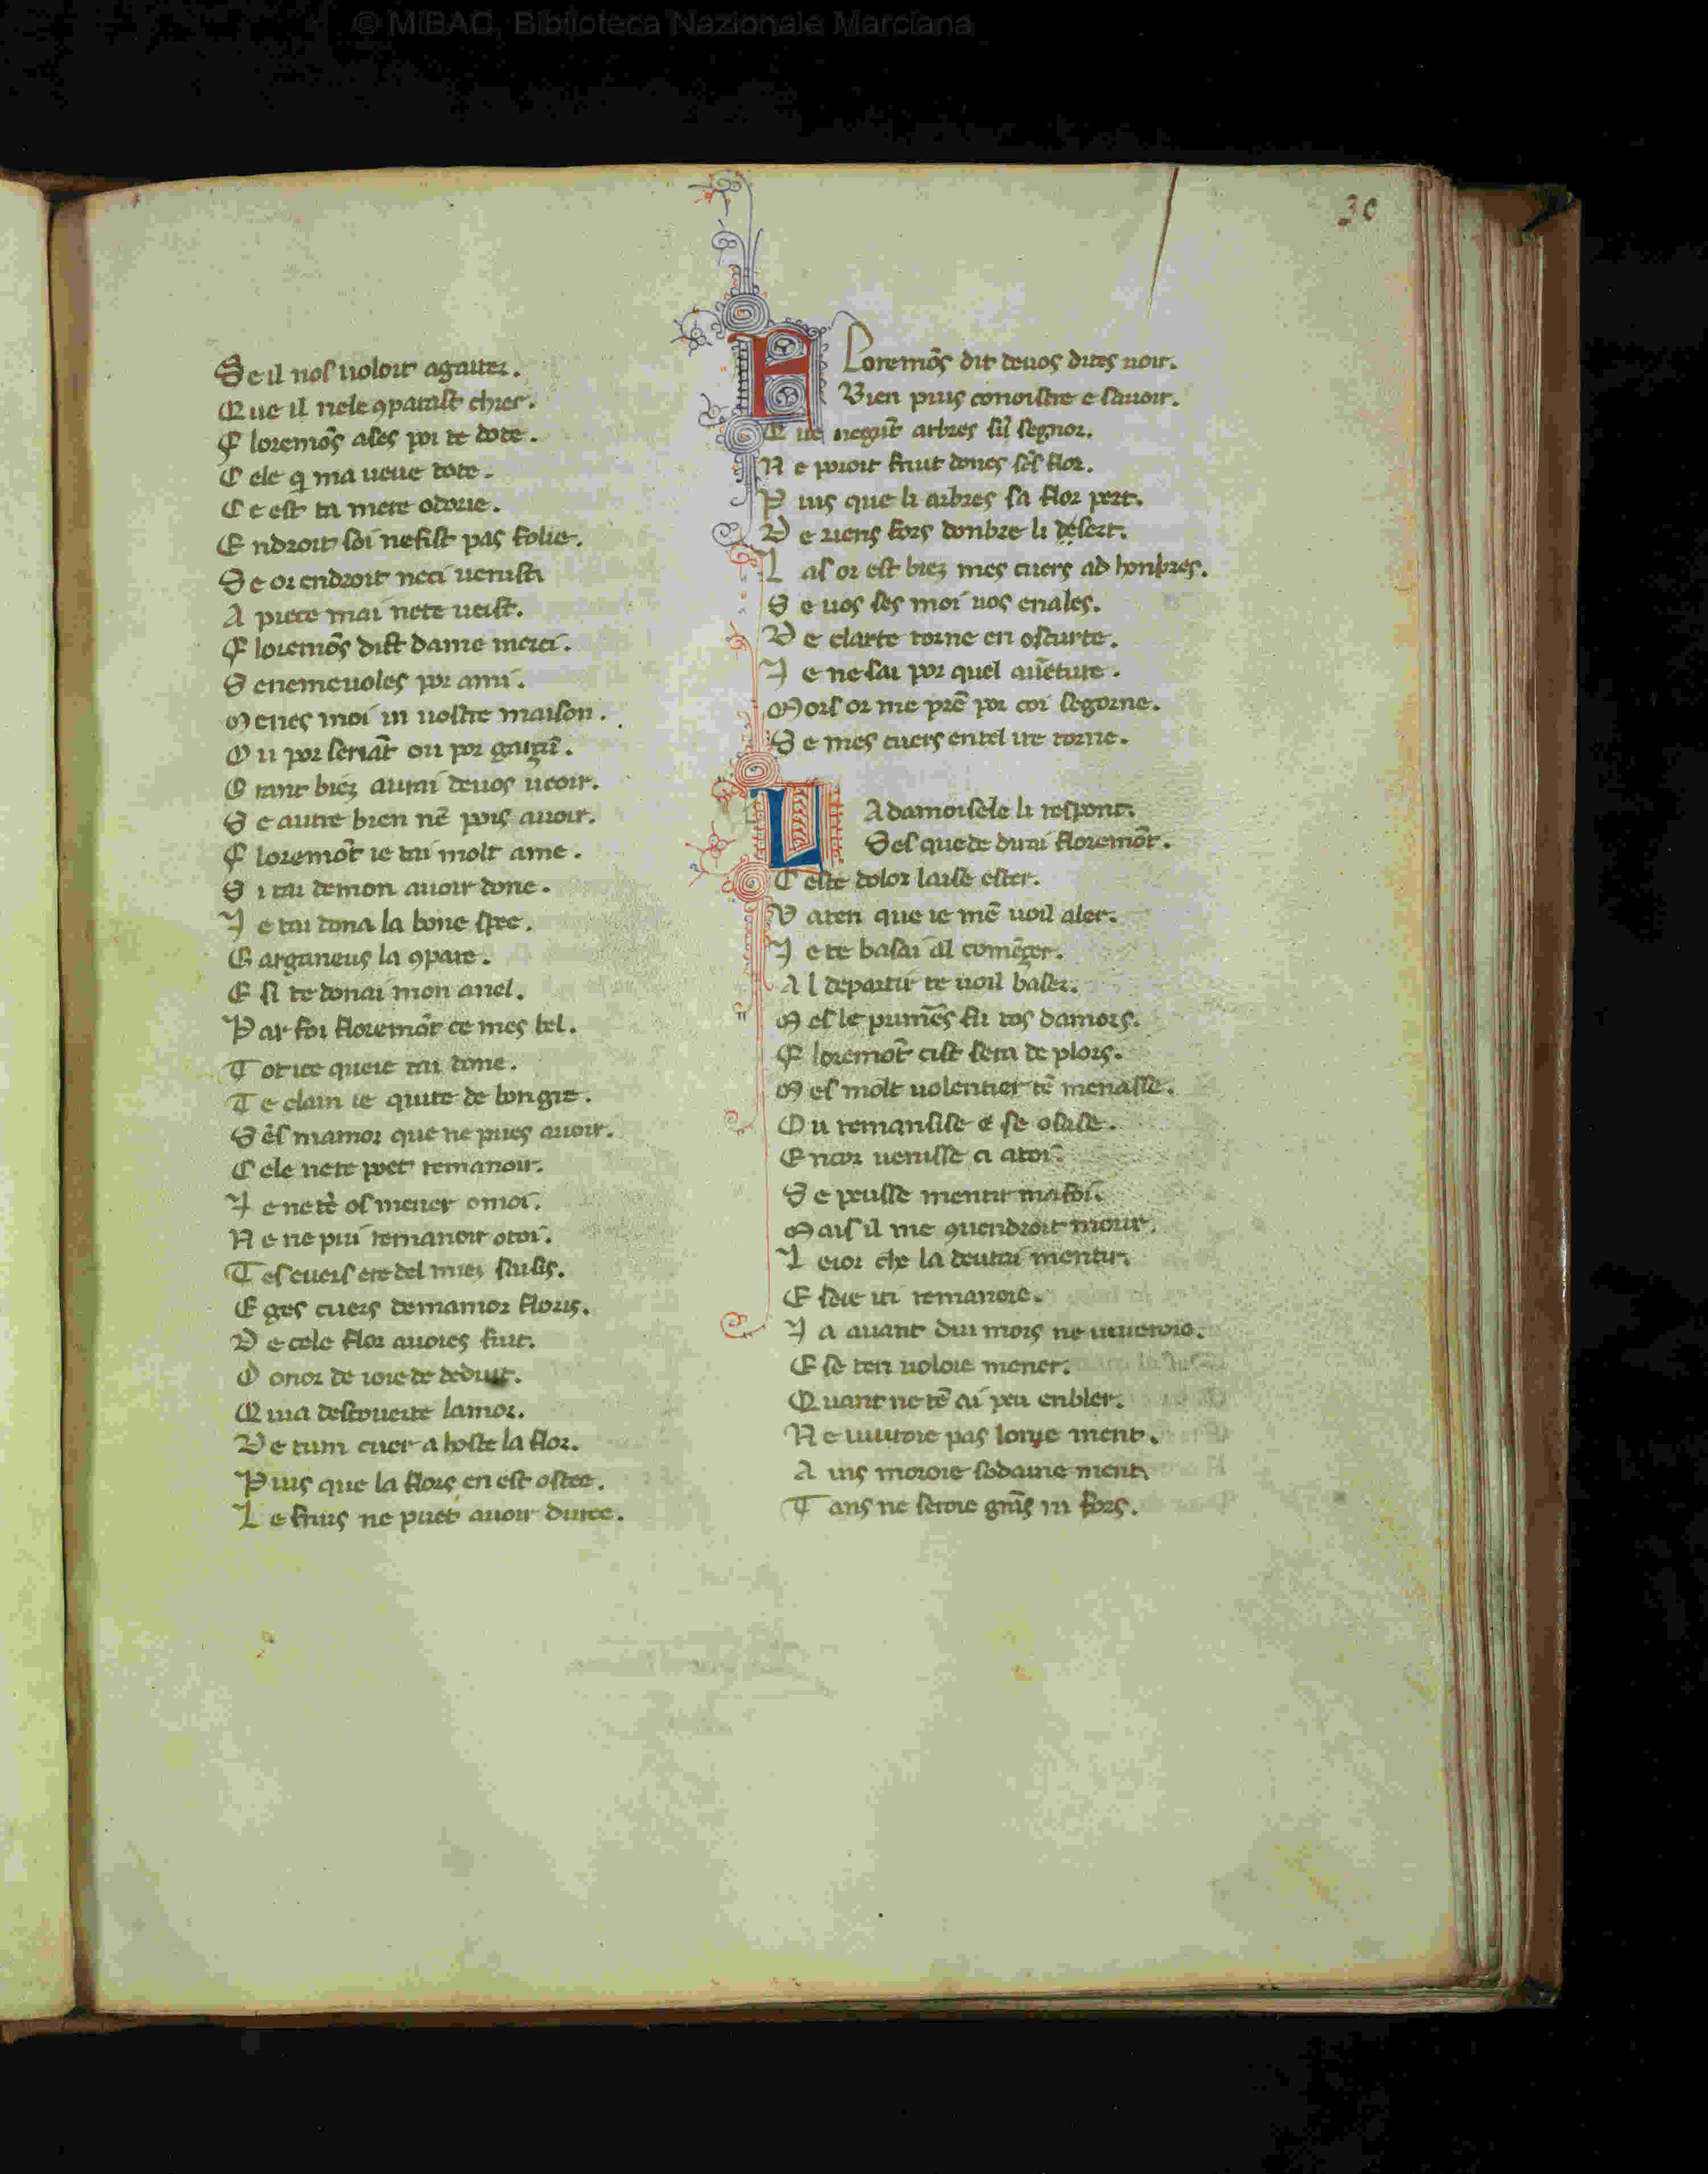 © MiBAC, Biblioteca Nazionale Marciana
30
Se il nos uoloit agaitez.
Que il nele ꝯparast chier.
F loremõs ases poi te dote.
C ele q̃ ma ueue tote.
C e est ta mere odoue.
E ndroit soi ne fist pas folie.
Se or endroit neci uenist
A piece mai nete ueist.
F loremõs dist dame merci.
S enemeuoles por ami.
Menes moi in uostre maison.
O u por seriãt ou por garzũ.
O tant biẽ aurai deuos ueoir.
S e autre bien nẽ pois auoir.
F loremõt ie tai molt ame.
S i tai demon auoir done.
J e tai dona la bone spee.
G arganeus la ꝯpare.
E si te donai mon anel.
Par foi floremõt ce mes bel.
T ot ice queie tai done.
T e claim ie quite de bongre.
S ẽs mamor que ne pues auoir.
C ele nete poet remanoir.
J e nete os mener o moi.
N e ne pui remanoir o toi.
T es cuers ere del miez saisis.
E ges cuers demamor floris.
D e cele flor auoies fruit.
O onor de ioie de deduit.
Q ui a descouerte lamor.
De tum cuer a hoste la flor.
Puis que la flors en est ostee.
L e fruis ne puet auoir duree.
F Loremõs dit deuos dites uoir.
Bien puis conoistre e sauoir.
Q ue negũt arbres sil segnor.
N e poroit fruit doner sẽs flor.
P uis que li arbres sa flor pert.
D e riens fors donbre li desert.
L as or est biez mes cuers ad honbres.
S e uos ses moi uos enales.
D e clarte torne en oscurte.
J e ne sai por quel auẽture.
Mors or me prẽ por coi segorne.
S e mes cuers entel ire torne.
L A damoisele li respont.
Ses que te dirai floremõt.
C este dolor laise ester.
V aten que ie mẽ uoil aler.
J e te basai al comẽzer.
A l departir te uoil baser.
Mes le pumẽs fu tos damors.
F loremõt cist sera de plors.
Mes molt uolentier tẽ menasse.
O u remansise e se osase.
E ncor uenisse ci a toi.
S e peusse mentir ma foi.
Mais il me ꝯuendroit morir.
L eior che la deurai mentir.
E seie ici remanoie.
J a auant dui mois ne uiueroie.
E se ten uoloie mener.
Quant ne tẽ ai peu enbler.
N e uiuroie pas longe ment.
A ins moroie sodaine ment.
T ans ne seroie grãs ni fors.